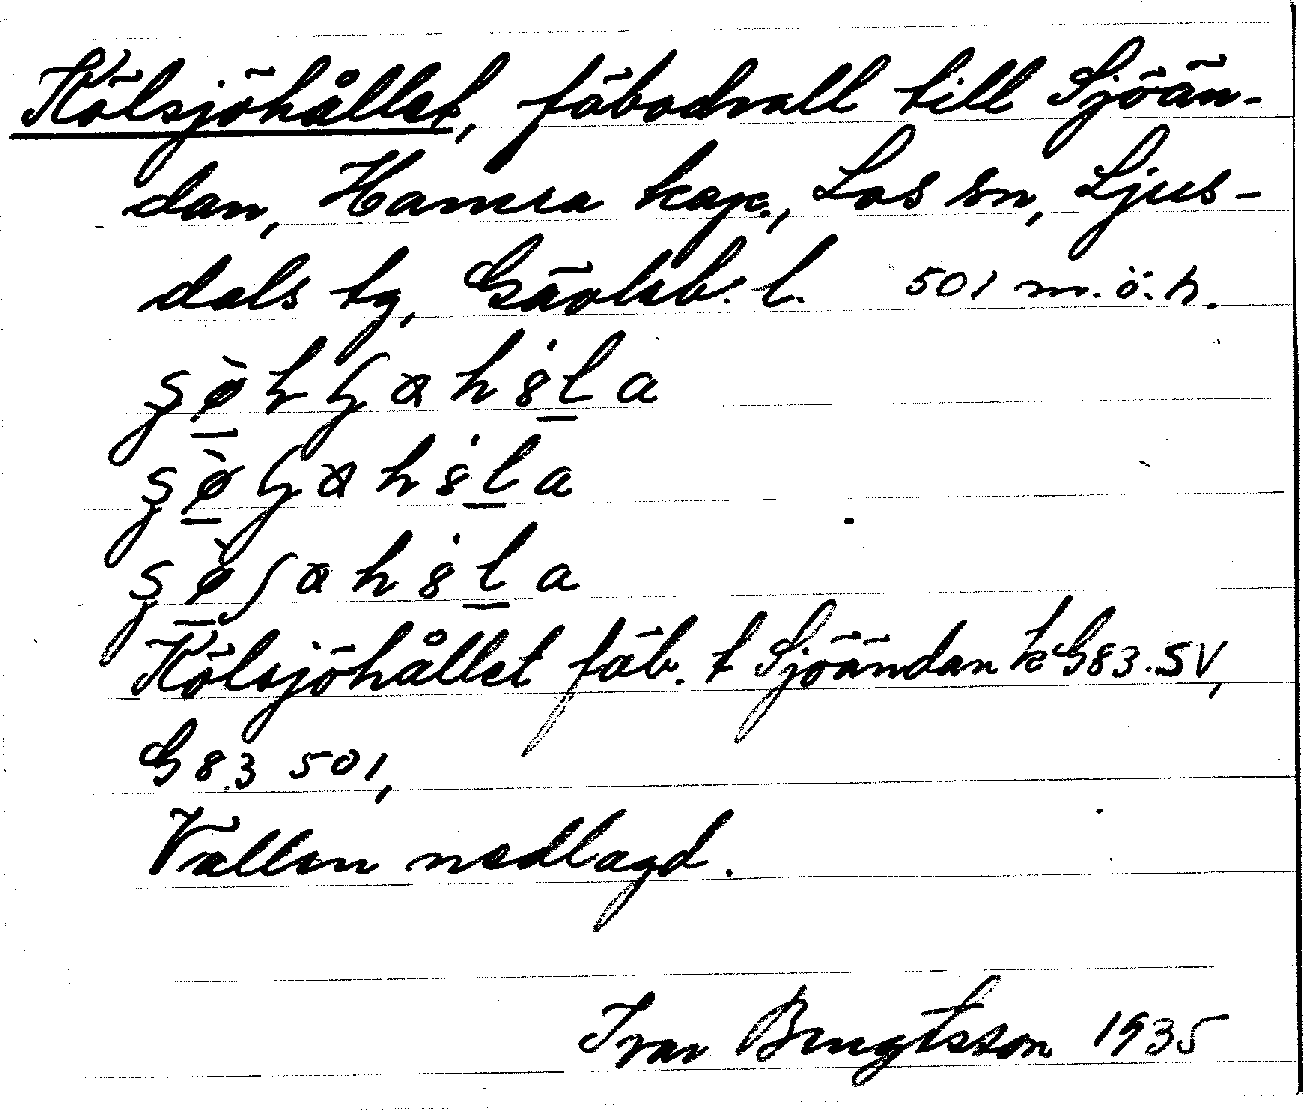 Kölsjöhållet, fäbodvall till Sjöän-
dan, Hamra kap., Los sn, Ljus-
dals tg, Gävleb. l. 501 m.ö.h.
Kölsjöhållet fäb. t Sjöändan k G83.SV,
G83 501,
Vallen nedlagd.
Ivar Bengtsson 1935